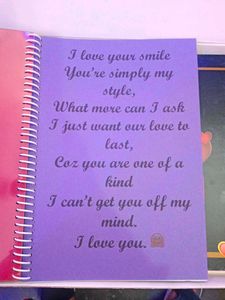 I love your smile
You're simply my
style,
What more can I ask
I just want our love to
last,
Coz you are one of a
kind
I can't get you off my
mind.
I love you.